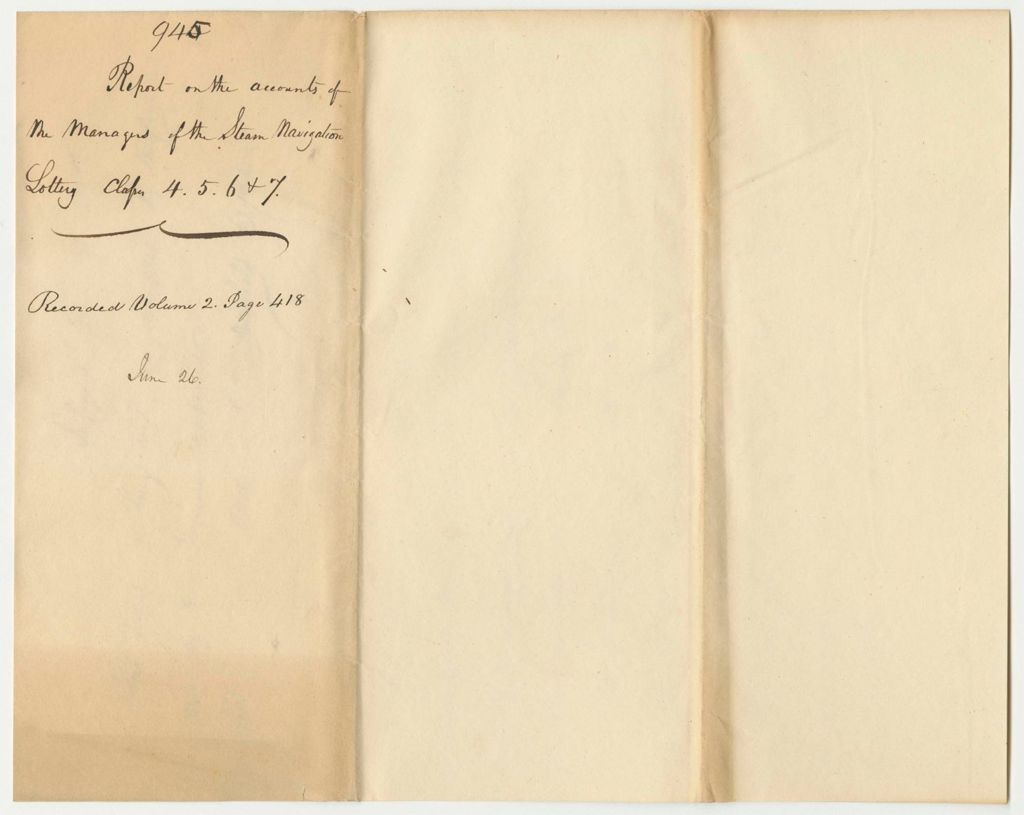 945
Report on the accounts of
the Managers of the Steam Navigation
Lottery Classes 4. 5. 6 & 7.
Recorded Volume 2. Page 418
June 26.